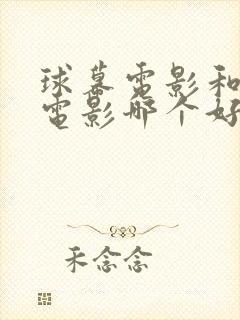 球幕電影和
電影哪个好
禾念念